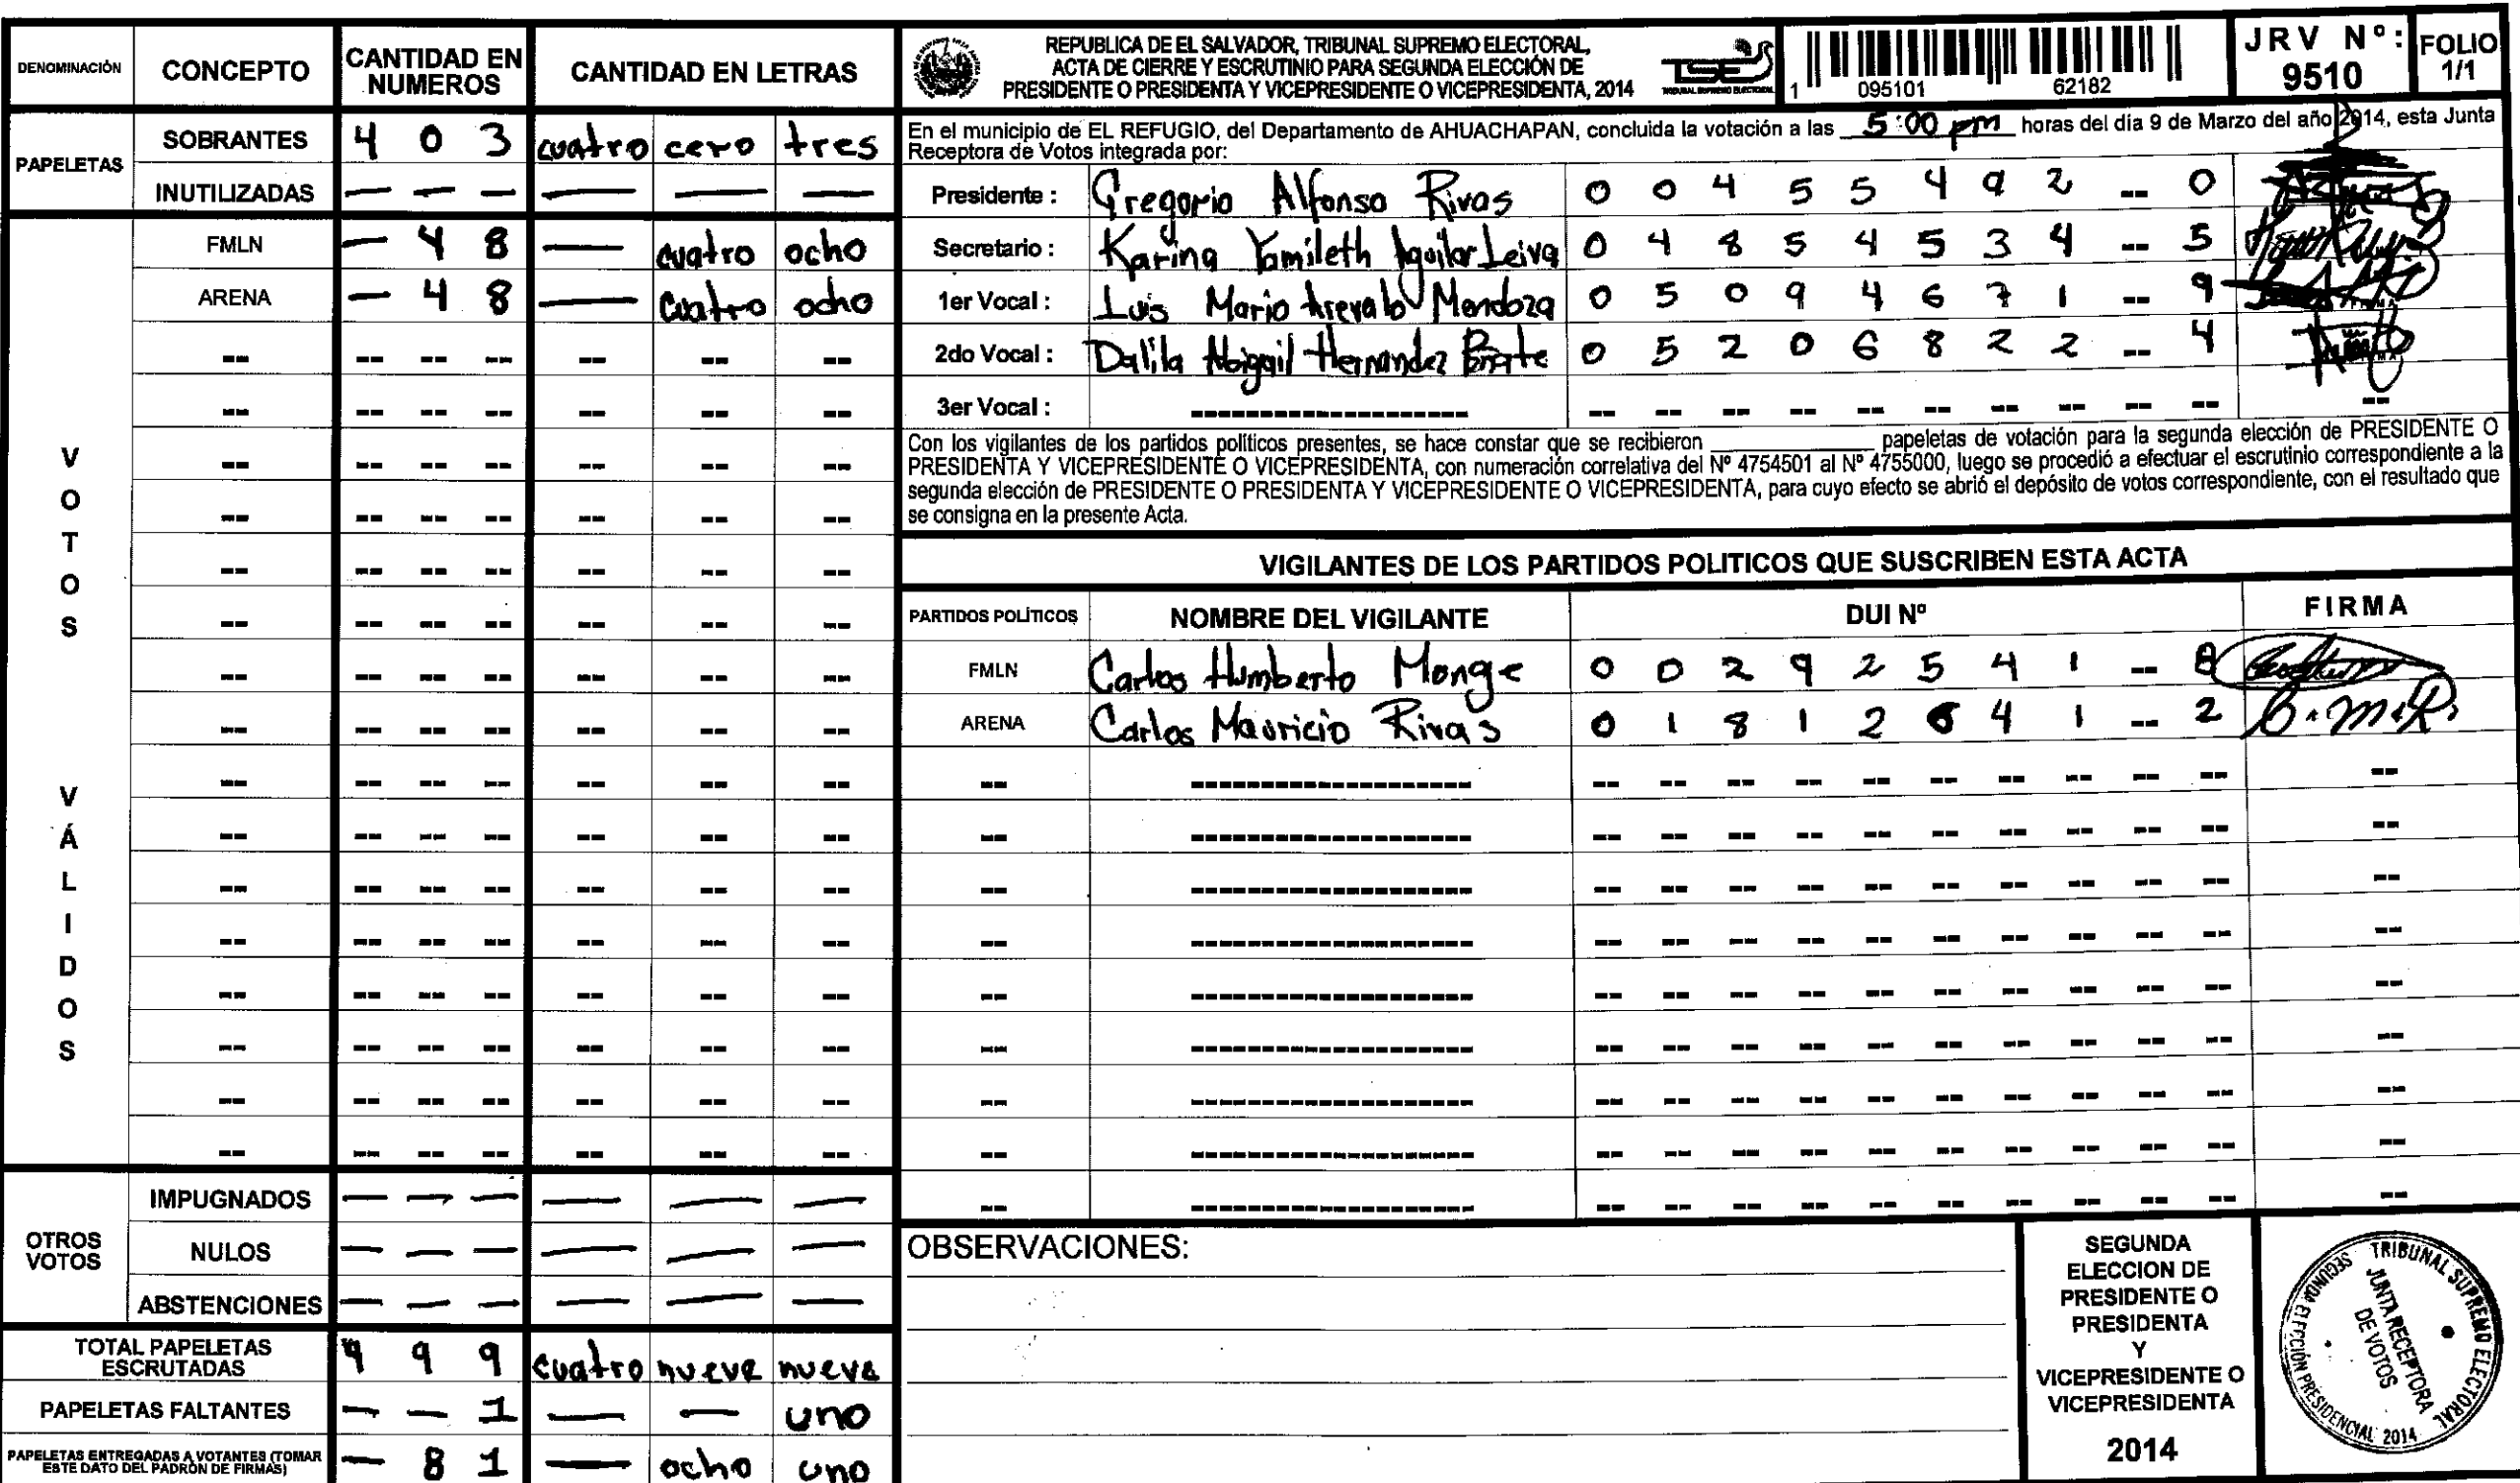 DENOMINACIÓN CONCEPTO CANTIDAD EN NUMEROS CANTIDAD EN LETRAS
PAPELETAS
SOBRANTES 4 0 3 cuatro cero tres
INUTILIZADAS — — — — — —
VOTOS VÁLIDOS
FMLN — 4 8 — cuatro ocho
ARENA — 4 8 — cuatro ocho
OTROS VOTOS
IMPUGNADOS — — — — — —
NULOS — — — — — —
ABSTENCIONES — — — — — —
TOTAL PAPELETAS ESCRUTADAS 4 9 9 cuatro nueve nueve
PAPELETAS FALTANTES — — 1 — — uno
PAPELETAS ENTREGADAS A VOTANTES (TOMAR ESTE DATO DEL PADRÓN DE FIRMAS) — 8 1 — ocho uno
REPUBLICA DE EL SALVADOR, TRIBUNAL SUPREMO ELECTORAL,
ACTA DE CIERRE Y ESCRUTINIO PARA SEGUNDA ELECCIÓN DE
PRESIDENTE O PRESIDENTA Y VICEPRESIDENTE O VICEPRESIDENTA, 2014
TSE
TRIBUNAL SUPREMO ELECTORAL
1 095101 62182
JRV Nº: 9510
FOLIO 1/1
En el municipio de EL REFUGIO, del Departamento de AHUACHAPAN, concluida la votación a las 5:00 pm horas del día 9 de Marzo del año 2014, esta Junta
Receptora de Votos integrada por:
Presidente : Gregorio Alfonso Rivas 0 0 4 5 5 4 9 2 -- 0
Secretario : Karina Yamileth Aguilar Leiva 0 4 8 5 4 5 3 4 -- 5
1er Vocal : Luis Mario Arevalo Mendoza 0 5 0 9 4 6 7 1 -- 9
2do Vocal : Dalila Abigail Hernandez 0 5 2 0 6 8 2 2 -- 4
3er Vocal :
Con los vigilantes de los partidos políticos presentes, se hace constar que se recibieron ________ papeletas de votación para la segunda elección de PRESIDENTE O
PRESIDENTA Y VICEPRESIDENTE O VICEPRESIDENTA, con numeración correlativa del Nº 4754501 al Nº 4755000, luego se procedió a efectuar el escrutinio correspondiente a la
segunda elección de PRESIDENTE O PRESIDENTA Y VICEPRESIDENTE O VICEPRESIDENTA, para cuyo efecto se abrió el depósito de votos correspondiente, con el resultado que
se consigna en la presente Acta.
VIGILANTES DE LOS PARTIDOS POLITICOS QUE SUSCRIBEN ESTA ACTA
PARTIDOS POLÍTICOS NOMBRE DEL VIGILANTE DUI Nº FIRMA
FMLN Carlos Humberto Monge 0 0 2 9 2 5 4 1 --
ARENA Carlos Mauricio Rivas 0 1 8 1 2 6 4 1 -- 2 C.M.R.
OBSERVACIONES:
SEGUNDA
ELECCION DE
PRESIDENTE O
PRESIDENTA
Y
VICEPRESIDENTE O
VICEPRESIDENTA
2014
TRIBUNAL SUPREMO ELECTORAL
JUNTA RECEPTORA
DE VOTOS
SEGUNDA ELECCIÓN PRESIDENCIAL 2014